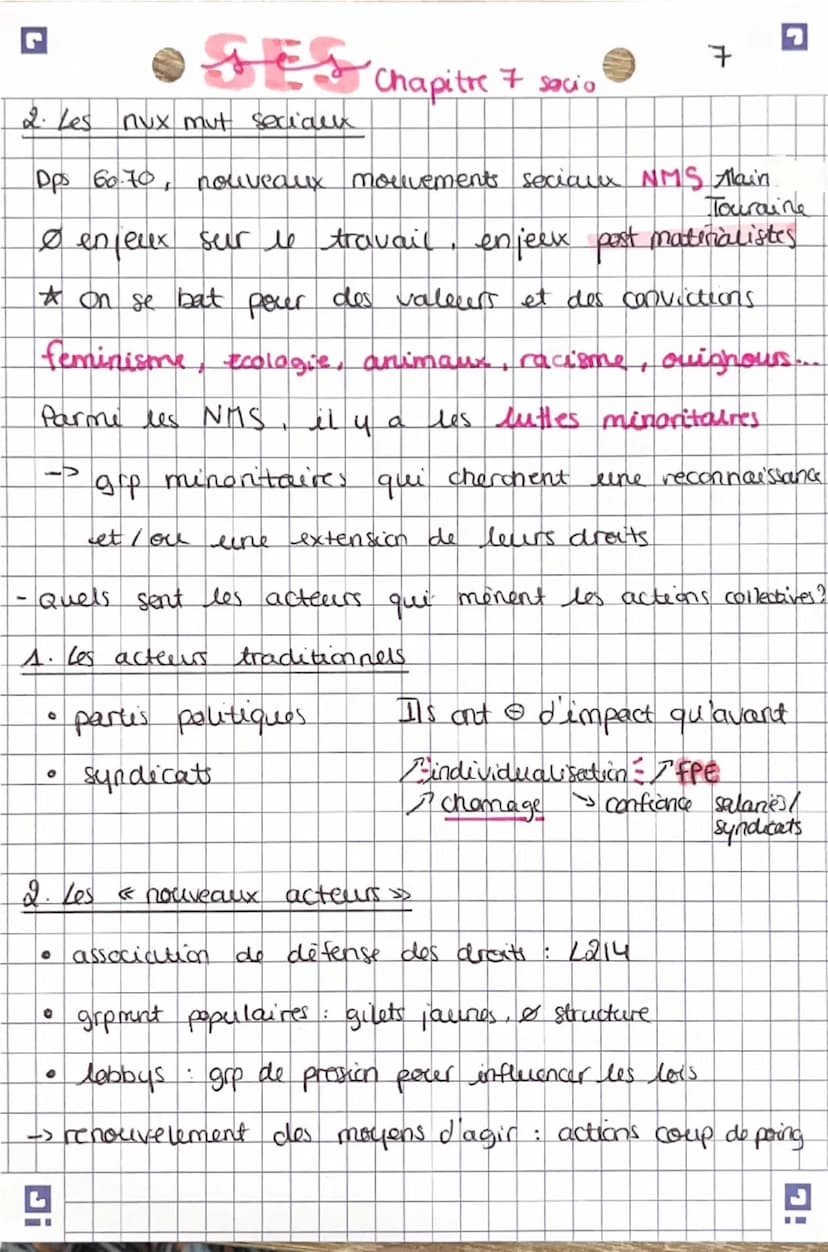 SES Chapitre 7 socio 7
2. Les nvx mvt sociaux
Dps 60.70, nouveaux mouvements sociaux NMS Alain
Touraine
Ø enjeux sur le travail, enjeux post matérialistes
☆ On se bat pour des valeurs et des convictions
feminisme, ecologie, animaux, racisme, ouighours...
Parmi les NMS, il y a les luttes minoritaires
-> grp minoritaires qui cherchent une reconnaissance
et/ou une extension de leurs droits
- Quels sont les acteurs qui mènent les actions collectives?
1. Les acteurs traditionnels
• partis politiques Ils ont ⊖ d'impact qu'avant
• syndicats ↗ individualisation ↗ FPE
↗ chomage ↘ confiance salariés/
syndicats
2. Les « nouveaux acteurs »
• association de défense des droits : L214
• grpmnt populaires : gilets jaunes, Ø structure
• lobbys : grp de pression pour influencer les lois
-> renouvelement des moyens d'agir : actions coup de poing